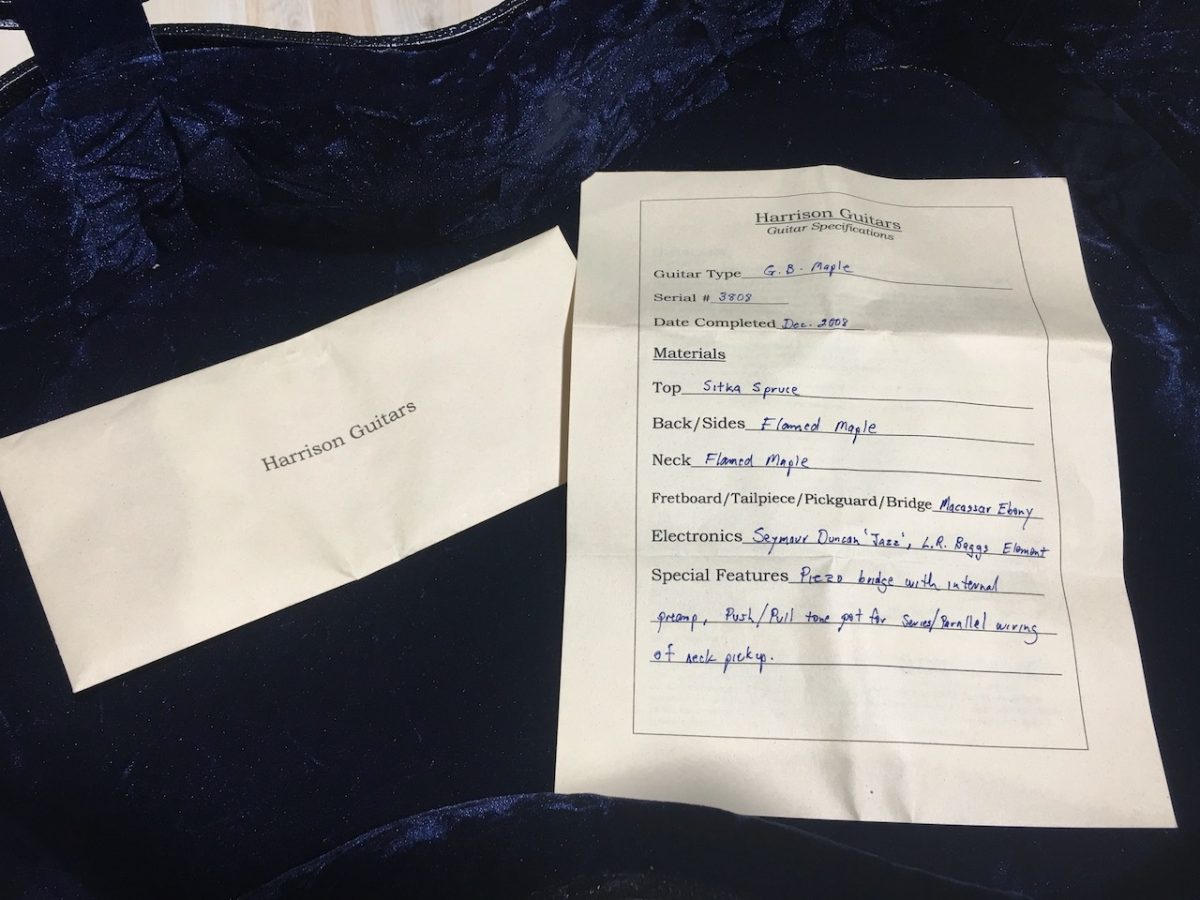 Harrison Guitars
Harrison Guitars
Guitar Specifications
Guitar Type G.B. Maple
Serial # 3808
Date Completed Dec. 2008
Materials
Top Sitka Spruce
Back/Sides Flamed Maple
Neck Flamed Maple
Fretboard/Tailpiece/Pickguard/Bridge Macassar Ebony
Electronics Seymour Duncan 'Jazz', L.R. Baggs Element
Special Features Piezo bridge with internal
preamp, Push/Pull tone pot for Series/Parallel wiring
of neck pickup.